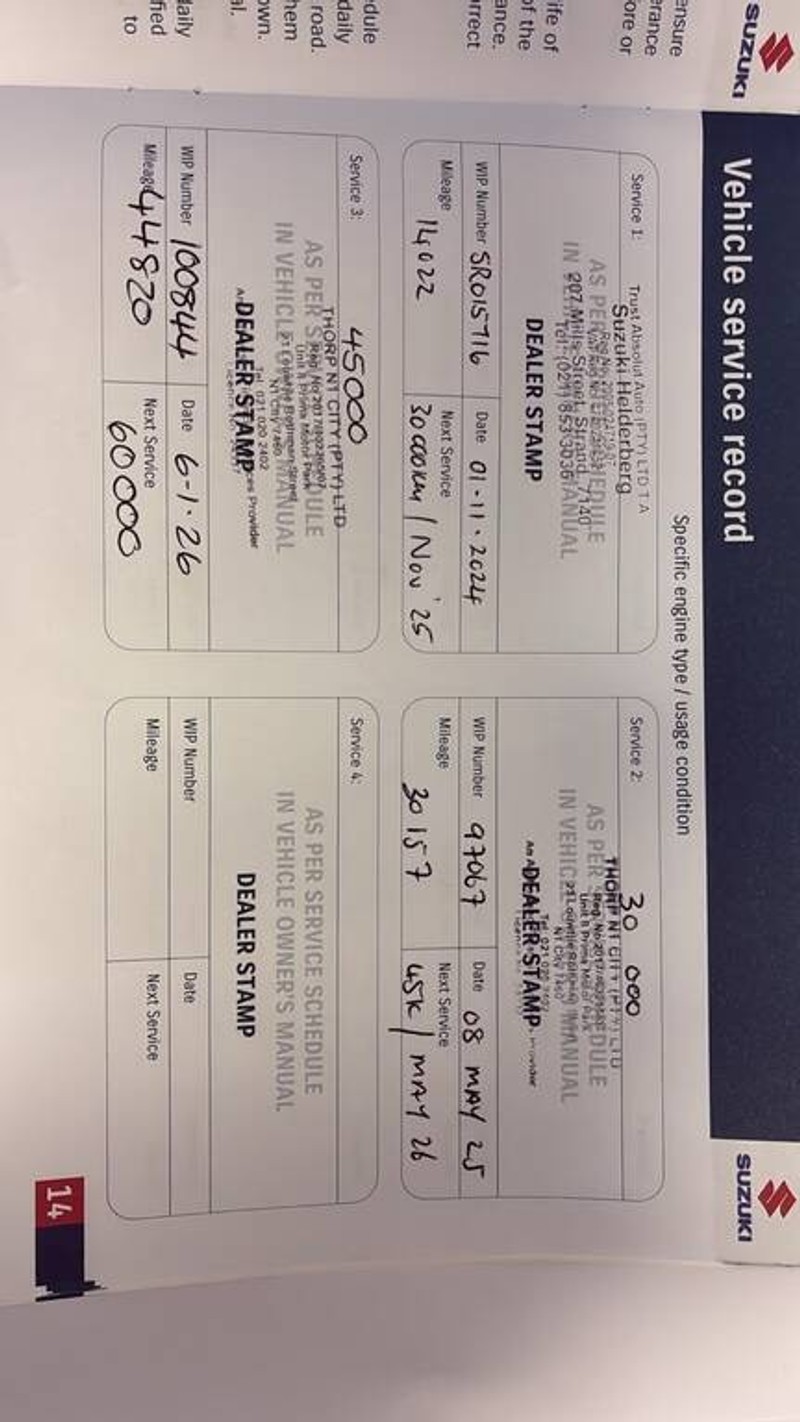 ensure
erance
ore or
ife of
of the
ance.
rrect
dule
daily
road.
hem
own.
al.
daily
fied
to
SUZUKI
SUZUKI
Vehicle service record
Specific engine type / usage condition
Service 1:
Trust Absolut Auto (PTY) LTD T A
Suzuki Helderberg
AS PER SCHEDULE
207 Mills Street, Strand, 7140
IN MANUAL
Tel: (021) 853 3036
DEALER STAMP
WIP Number SR015716
Date 01-11-2024
Mileage 14022
Next Service 30 000km / Nov '25
Service 2:
30 000
THORP NT CITY (PTY) LTD
AS PER DULE
Unit 8 Prima Motor Park
IN VEHIC MANUAL
NT City 7460
DEALER STAMP
Provider
WIP Number 97067
Date 08 MAY 25
Mileage 30157
Next Service 45K / MAY 26
Service 3:
45000
THORP NT CITY (PTY) LTD
AS PER S DULE
Unit 8 Prima Motor Park
IN VEHICLE MANUAL
NT City 7460
Tel 021 020 2402
DEALER STAMP
Provider
WIP Number 100844
Date 6-1-26
Mileage 44820
Next Service 60000
Service 4:
AS PER SERVICE SCHEDULE
IN VEHICLE OWNER'S MANUAL
DEALER STAMP
WIP Number
Date
Mileage
Next Service
14